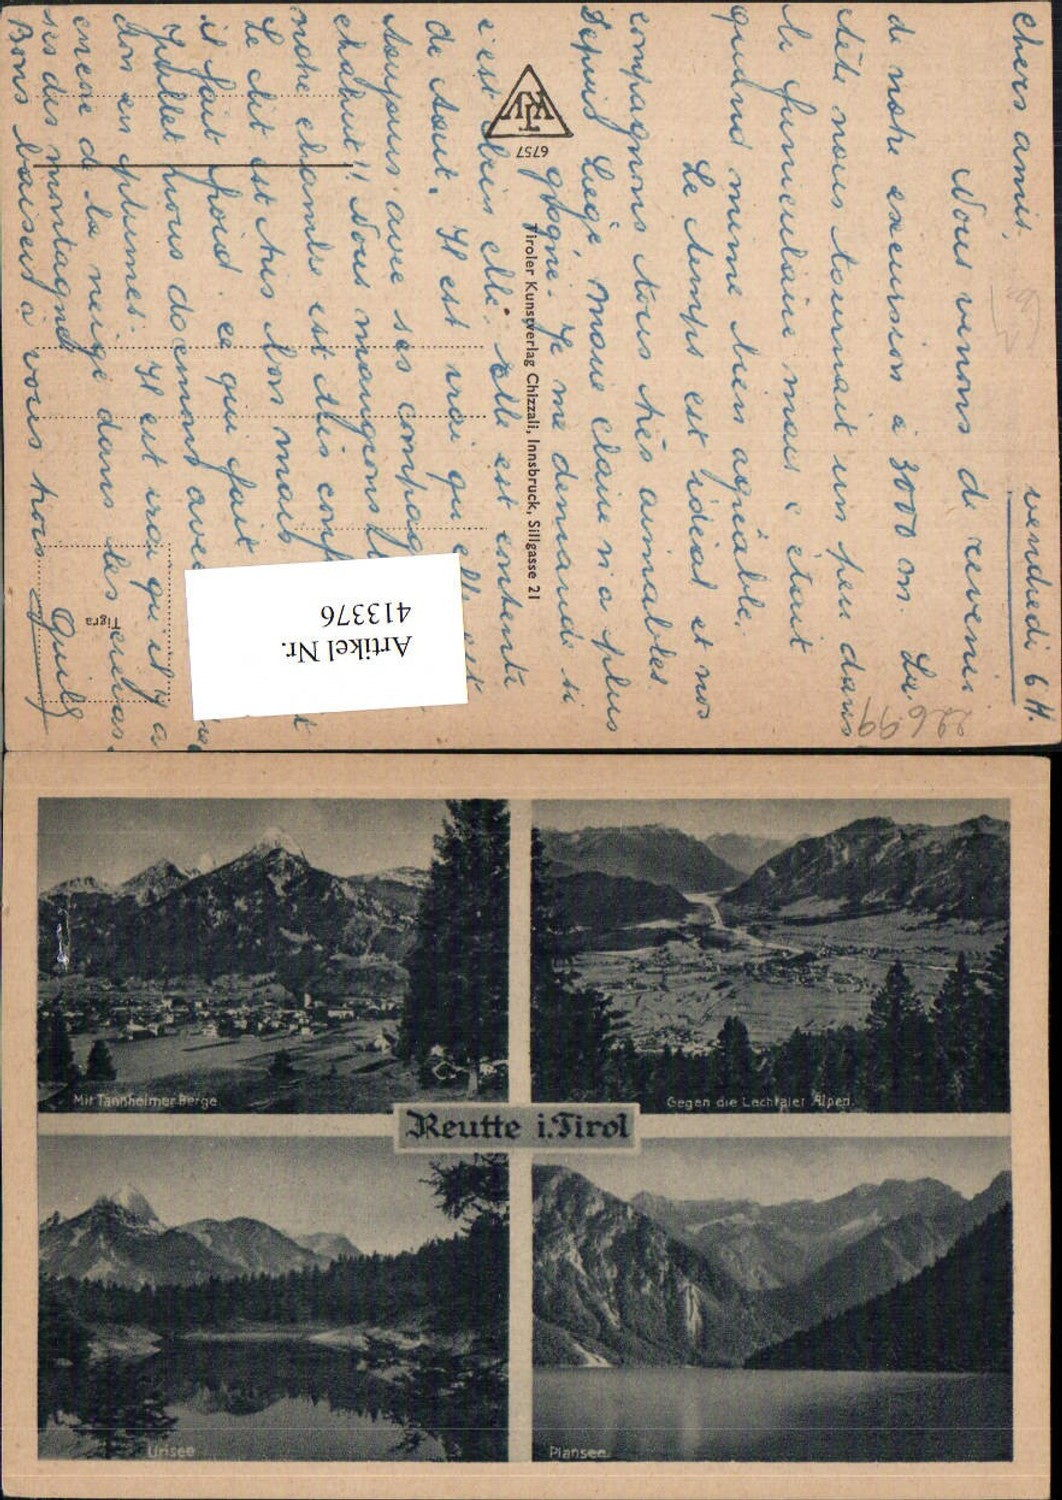 vendredi 6 H.
Chers amis,
Nous venons de revenir
de notre excursion à 3000 m. La
tête nous tournait un peu dans
le funiculaire mais c'était
quand même bien agréable.
Le temps est idéal et nos
compagnons tous très aimables.
Depuis Liège, marie claire n'a plus
grogné. Je me demande si
c'est bien elle. Elle est contente
de tout. Il est vrai qu'elle est
toujours avec ses
chahut!! Nous mangeons
notre chambre est très
Le lit est très bon mais
il fait froid ce qui fait
Juillet nous dormons avec
don en plumes. Il est vrai qu'il y a
encore de la neige dans les
ses des montagnes
Bons baisers à vous trois
TKV
6757
Tiroler Kunstverlag Chizzali, Innsbruck, Sillgasse 21
Tigra
22699
Artikel Nr.
413376
Mit Tannheimer Berge
Gegen die Lechtaler Alpen.
Reutte i. Tirol
Urisee
Plansee